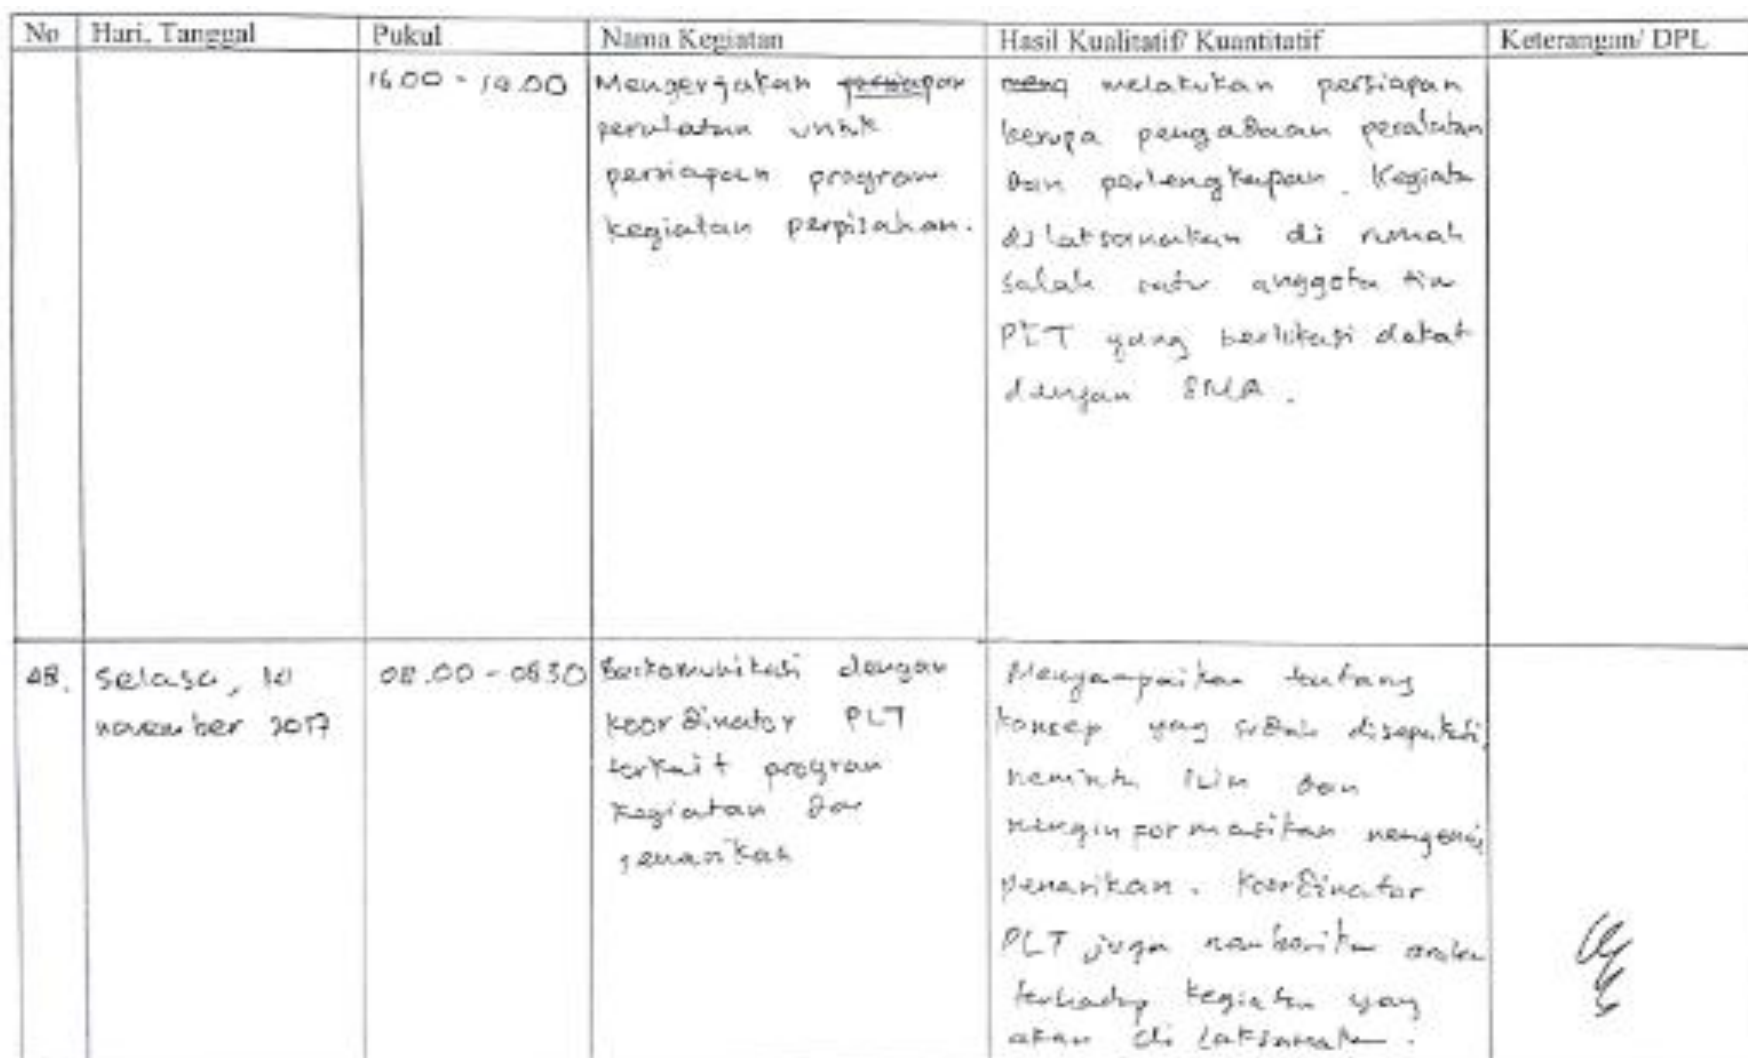 No Hari, Tanggal Pukul Nama Kegiatan Hasil Kualitatif/ Kuantitatif Keterangan/ DPL
16.00 - Mengerjakan persiapan
peralatan untuk
persiapan program
kegiatan perpisahan.
meng melakukan persiapan
berupa pengadaan peralatan
dan perlengkapan. Kegiatan
dilaksanakan di rumah
salah satu anggota tim
PLT yang berlokasi dekat
dengan SMA.
Selasa,
november 2017
08.00 - 08.30
Berkomunikasi dengan
koordinator PLT
terkait program
kegiatan dan
penarikan
Menyampaikan tentang
konsep yang sudah disepakati,
meminta izin dan
menginformasikan mengenai
penarikan. Koordinator
PLT juga memberikan arahan
terhadap kegiatan yang
akan di laksanakan.